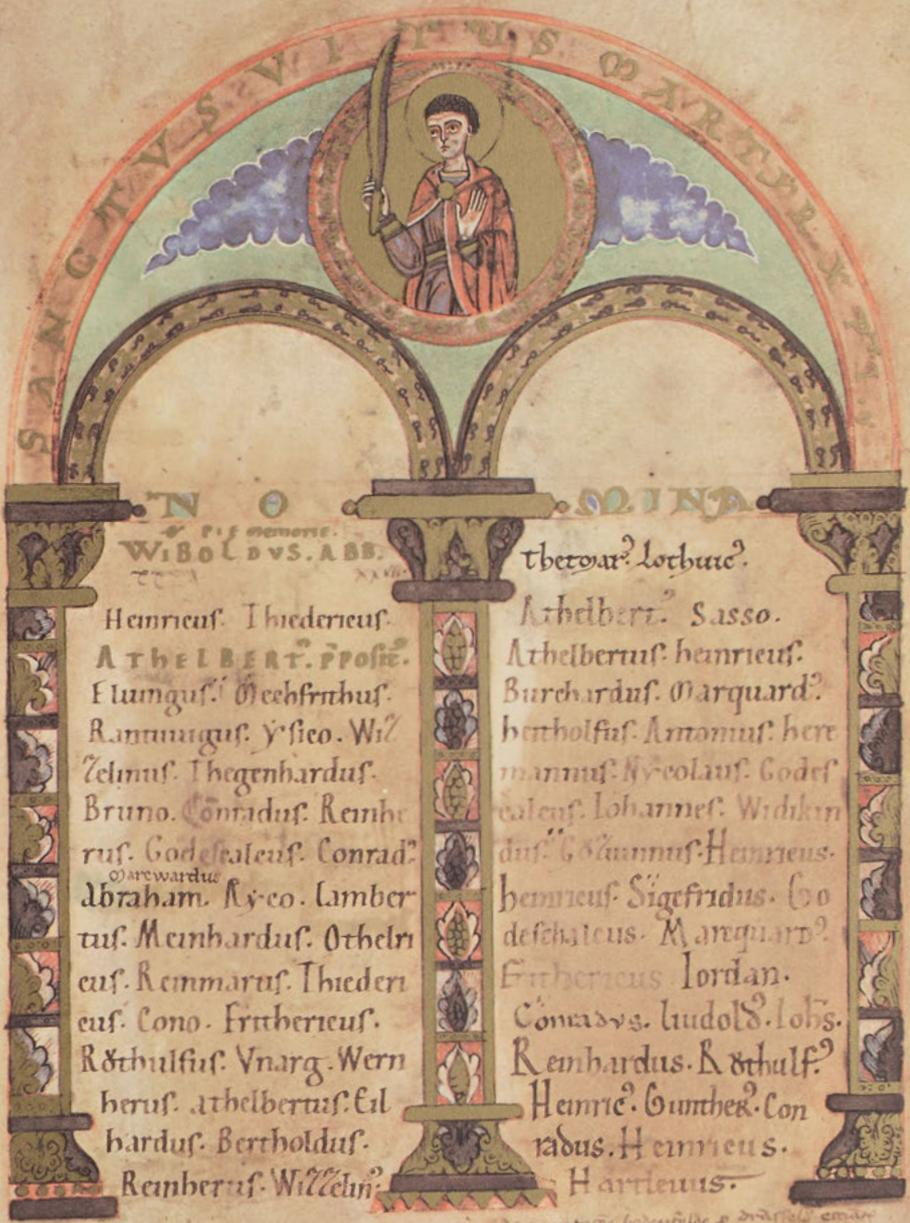 SANCTVS VITUS MARTYR XPI
NOMINA
pie memorie.
WIBOLDVS. ABB.
Heinricus. Thiedericus.
ATHELBERT'. PPOSIT'.
Eluingus. Mechfrithus.
Ranuuigus. Ysico. Wiz
zelinus. Thegenhardus.
Bruno. Conradus. Reinhe
rus. Godescalcus. Conrad'.
Marcwardus
Abraham. Ryco. Lamber
tus. Meinhardus. Othelri
cus. Remmarus. Thiederi
cus. Cono. Frithericus.
Rothulfus. Vnarg. Wern
herus. athelbertus. Eil
hardus. Bertholdus.
Reinherus. Wizzelin'.
thetmar'. Lothuic'.
Athelbert'. Sasso.
Athelbertus. heinricus.
Burchardus. Marquard'.
bertholfus. Antonius. here
mannus. Nycolaus. Godes
calcus. Iohannes. Widikin
dus. Heinricus.
heinricus. Sigefridus. Go
deschalcus. Marquard'.
Frithericus Iordan.
Conradvs. Ludold'. Iohs.
Reinhardus. Rothulf'.
Heinric'. Gunther. Con
radus. Heinricus.
Hartleuus.